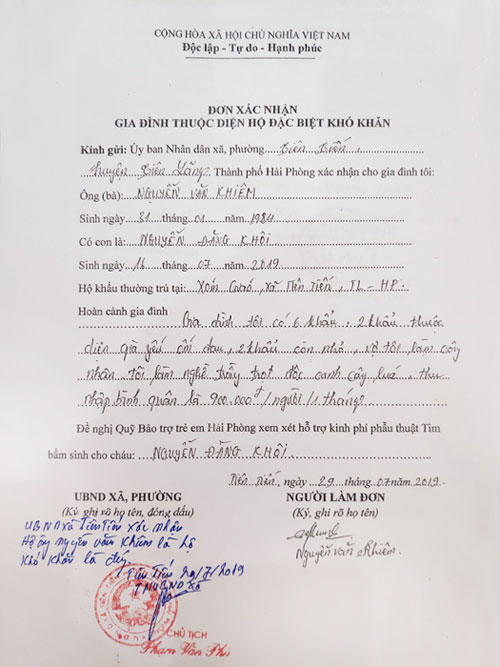 CỘNG HÒA XÃ HỘI CHỦ NGHĨA VIỆT NAM
Độc lập - Tự do - Hạnh phúc
ĐƠN XÁC NHẬN
GIA ĐÌNH THUỘC DIỆN HỘ ĐẶC BIỆT KHÓ KHĂN
Kính gửi: Ủy ban Nhân dân xã, phường.....Tiên Tiến.
huyện Tiên Lãng. Thành phố Hải Phòng xác nhận cho gia đình tôi:
Ông (bà): NGUYỄN VĂN KHIÊM
Sinh ngày 31 tháng 01 năm 1984
Có con là: NGUYỄN ĐĂNG KHÔI
Sinh ngày 16 tháng 07 năm 2019
Hộ khẩu thường trú tại: Xóm xã Tiên Tiến, TL - HP.
Hoàn cảnh gia đình
Gia đình tôi có 6 khẩu, 2 khẩu thuộc
diện già yếu ốm đau, 2 khẩu còn nhỏ, vợ tôi làm công
nhân tôi làm nghề trồng trọt độc canh cây lúa, thu
nhập bình quân là 900.000đ/người/1 tháng
Đề nghị Quỹ Bảo trợ trẻ em Hải Phòng xem xét hỗ trợ kinh phí phẫu thuật Tim
bẩm sinh cho cháu: NGUYỄN ĐĂNG KHÔI
Tiên Tiến, ngày 29 tháng 07 năm 2019.
UBND XÃ, PHƯỜNG
(Ký, ghi rõ họ tên, đóng dấu)
NGƯỜI LÀM ĐƠN
(Ký, ghi rõ họ tên)
UBND xã Tiên Tiến xác nhận
Hộ ông nguyễn văn Khiêm là hộ
Khó Khăn là đúng
Tiên Tiến 29/7/2019
TM UBND xã
Nguyễn Văn Khiêm.
CHỦ TỊCH
Phan Văn Phi